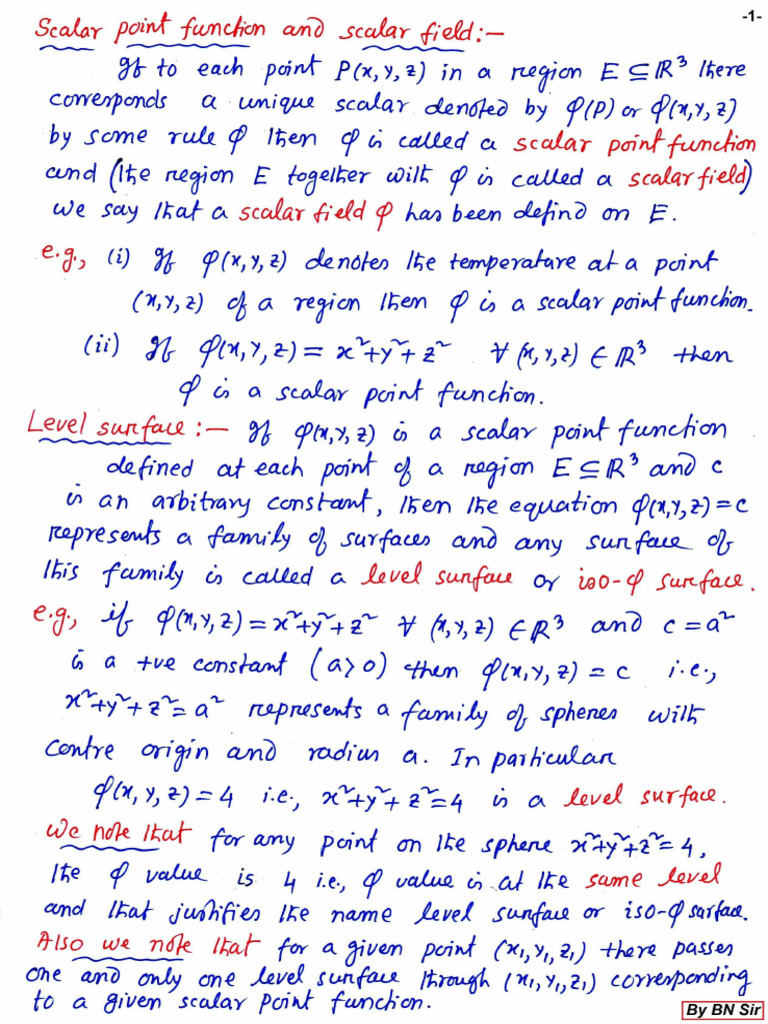 -1-
Scalar point function and scalar field:—
If to each point P(x,y,z) in a region E ⊆ ℝ³ there
corresponds a unique scalar denoted by φ(P) or φ(x,y,z)
by some rule φ then φ is called a scalar point function
and (the region E together with φ is called a scalar field)
we say that a scalar field φ has been defind on E.
e.g., (i) If φ(x,y,z) denotes the temperature at a point
(x,y,z) of a region then φ is a scalar point function.
(ii) If φ(x,y,z) = x²+y²+z² ∀ (x,y,z) ∈ ℝ³ then
φ is a scalar point function.
Level surface :— If φ(x,y,z) is a scalar point function
defined at each point of a region E ⊆ ℝ³ and c
is an arbitrary constant, then the equation φ(x,y,z)=c
represents a family of surfaces and any surface of
this family is called a level surface or iso-φ surface.
e.g., if φ(x,y,z) = x²+y²+z² ∀ (x,y,z) ∈ ℝ³ and c = a²
is a +ve constant (a>0) then φ(x,y,z) = c i.e.,
x²+y²+z²=a² represents a family of spheres with
centre origin and radius a. In particular
φ(x,y,z) = 4 i.e., x²+y²+z²=4 is a level surface.
We note that for any point on the sphere x²+y²+z²=4,
the φ value is 4 i.e., φ value is at the same level
and that justifies the name level surface or iso-φ sarface.
Also we note that for a given point (x₁,y₁,z₁) there passes
one and only one level surface through (x₁,y₁,z₁) corresponding
to a given scalar point function.
By BN Sir